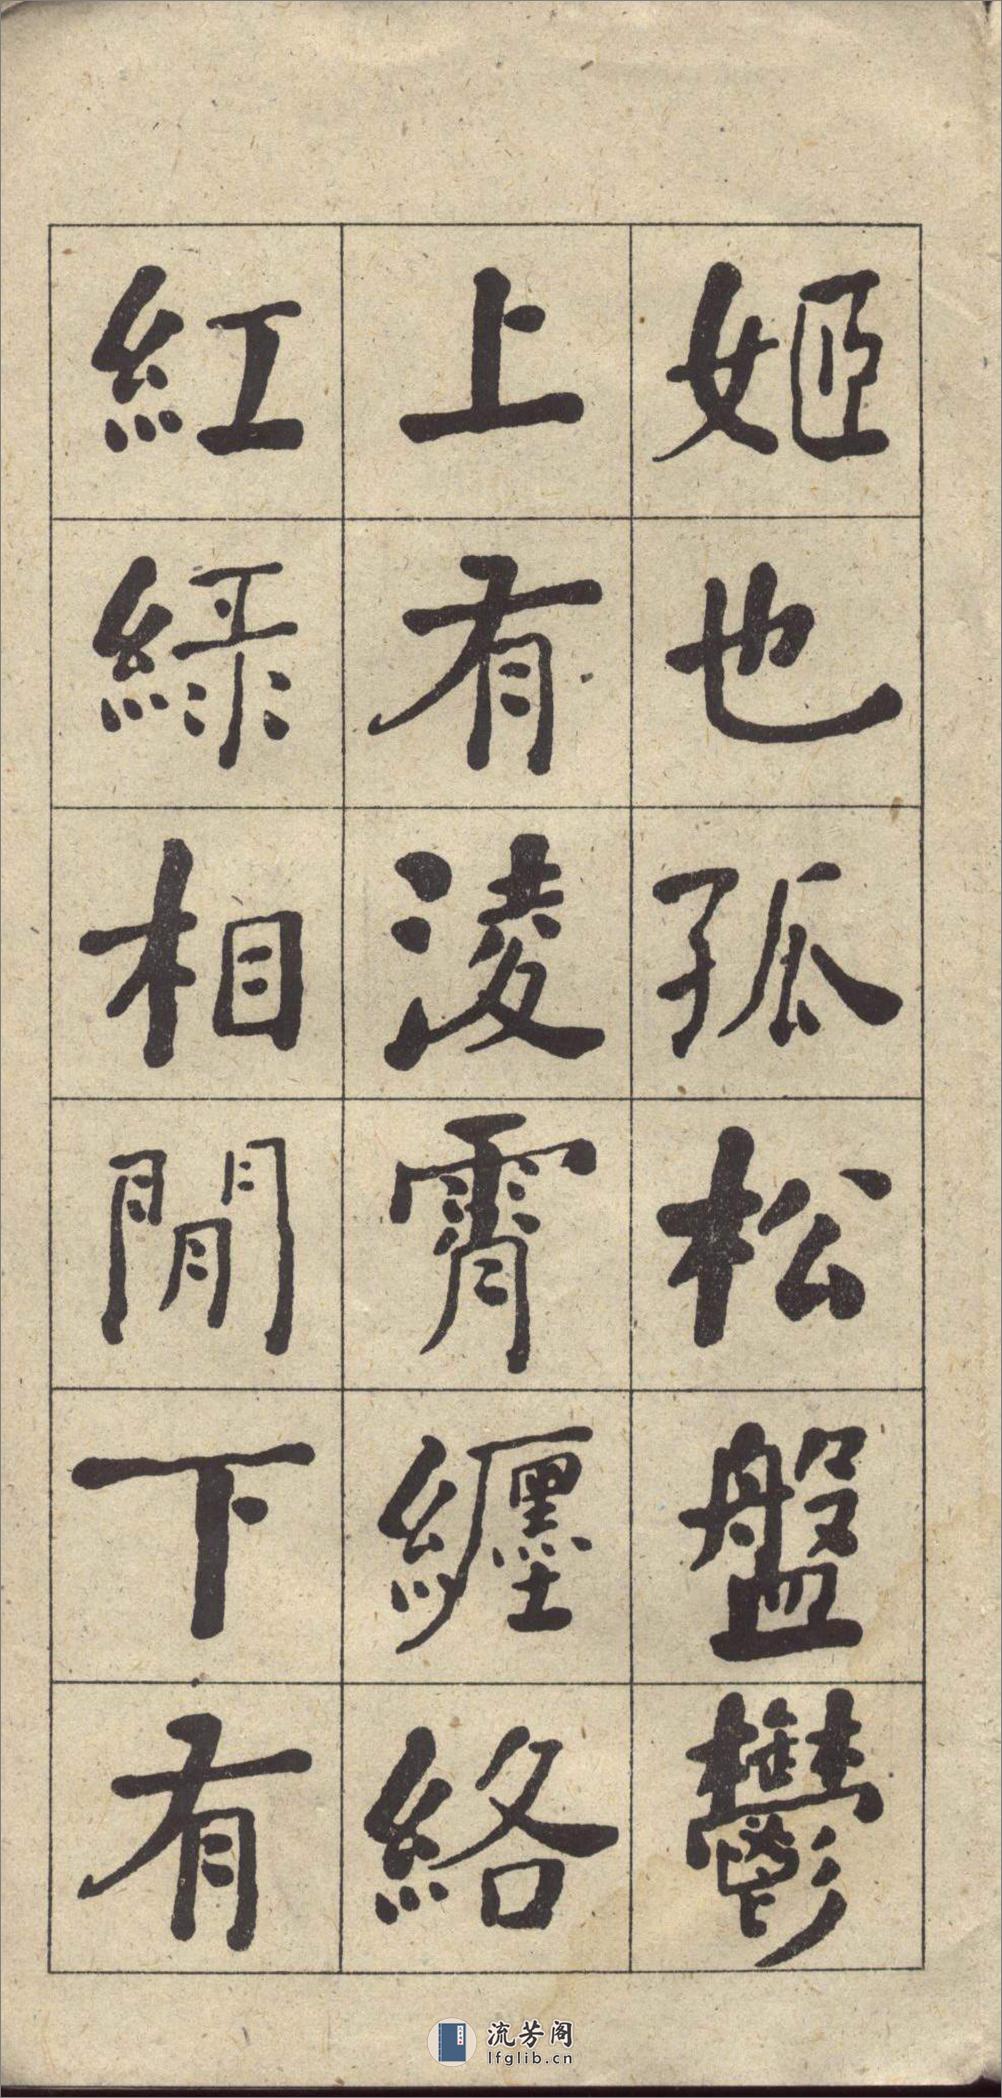 姬也孤松盤鬱
上有淩霄纏絡
紅綠相間下有
流芳阁
lfglib.cn